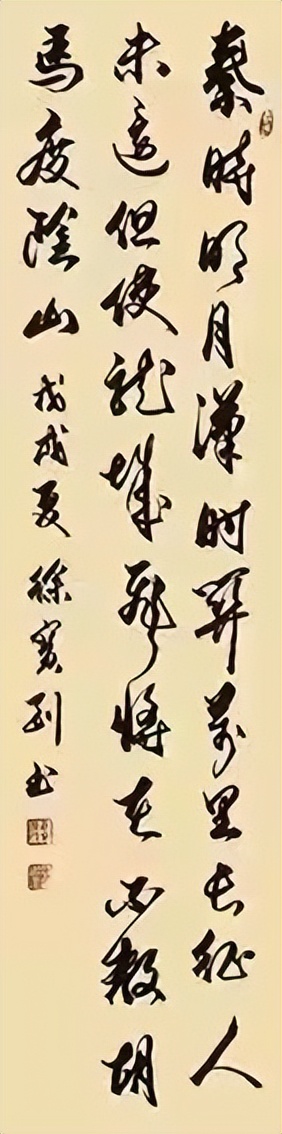 秦時明月漢时關萬里長征人
未還但使龍城飛將在不教胡
馬度陰山 戊戌夏 徐寶書